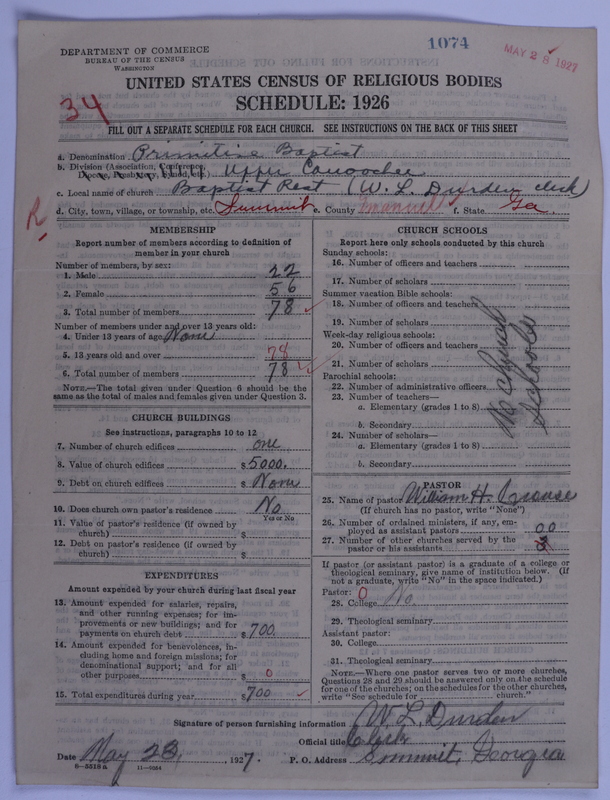 1074
MAY 28 1927
DEPARTMENT OF COMMERCE
BUREAU OF THE CENSUS
WASHINGTON
UNITED STATES CENSUS OF RELIGIOUS BODIES
SCHEDULE: 1926
34
FILL OUT A SEPARATE SCHEDULE FOR EACH CHURCH. SEE INSTRUCTIONS ON THE BACK OF THIS SHEET
a. Denomination Primitive Baptist
b. Division (Association, Conference, Diocese, Presbytery, Synod, etc.) Upper Canoochee
c. Local name of church Baptist Rest (W. L. Durden clerk)
d. City, town, village, or township, etc. Summit e. County Emanuel f. State Ga.
R
MEMBERSHIP
Report number of members according to definition of
member in your church
Number of members, by sex:
1. Male 22
2. Female 56
3. Total number of members 78
Number of members under and over 13 years old:
4. Under 13 years of age None
5. 13 years old and over 78
6. Total number of members 78
NOTE.—The total given under Question 6 should be the
same as the total of males and females given under Question 3.
CHURCH BUILDINGS
See instructions, paragraphs 10 to 12
7. Number of church edifices one
8. Value of church edifices $5000.
9. Debt on church edifices $ None
10. Does church own pastor's residence No
Yes or No
11. Value of pastor's residence (if owned by
church) $
12. Debt on pastor's residence (if owned by
church) $
EXPENDITURES
Amount expended by your church during last fiscal year
13. Amount expended for salaries, repairs,
and other running expenses; for im-
provements or new buildings; and for
payments on church debt $700.
14. Amount expended for benevolences, in-
cluding home and foreign missions; for
denominational support; and for all
other purposes $ 0
15. Total expenditures during year $700
CHURCH SCHOOLS
Report here only schools conducted by this church
Sunday schools:
16. Number of officers and teachers
17. Number of scholars
Summer vacation Bible schools:
18. Number of officers and teachers
19. Number of scholars
Week-day religious schools:
20. Number of officers and teachers
21. Number of scholars
Parochial schools:
22. Number of administrative officers
23. Number of teachers—
a. Elementary (grades 1 to 8)
b. Secondary
24. Number of scholars—
a. Elementary (grades 1 to 8)
b. Secondary
No Church
Schools
PASTOR
25. Name of pastor William H. Crouse
(If church has no pastor, write "None")
26. Number of ordained ministers, if any, em-
ployed as assistant pastors 00
27. Number of other churches served by the
pastor or his assistants
If pastor (or assistant pastor) is a graduate of a college or
theological seminary, give name of institution below. (If
not a graduate, write "No" in the space indicated.)
Pastor: 0
28. College No.
29. Theological seminary
Assistant pastor:
30. College
31. Theological seminary
NOTE.—Where one pastor serves two or more churches,
Questions 28 and 29 should be answered only on the schedule
for one of the churches; on the schedules for the other churches,
write "See schedule for church."
Signature of person furnishing information W. L. Durden
Official title Clerk
Date May 23, 1927. P. O. Address Summit, Georgia
8—5518 a 11—5284